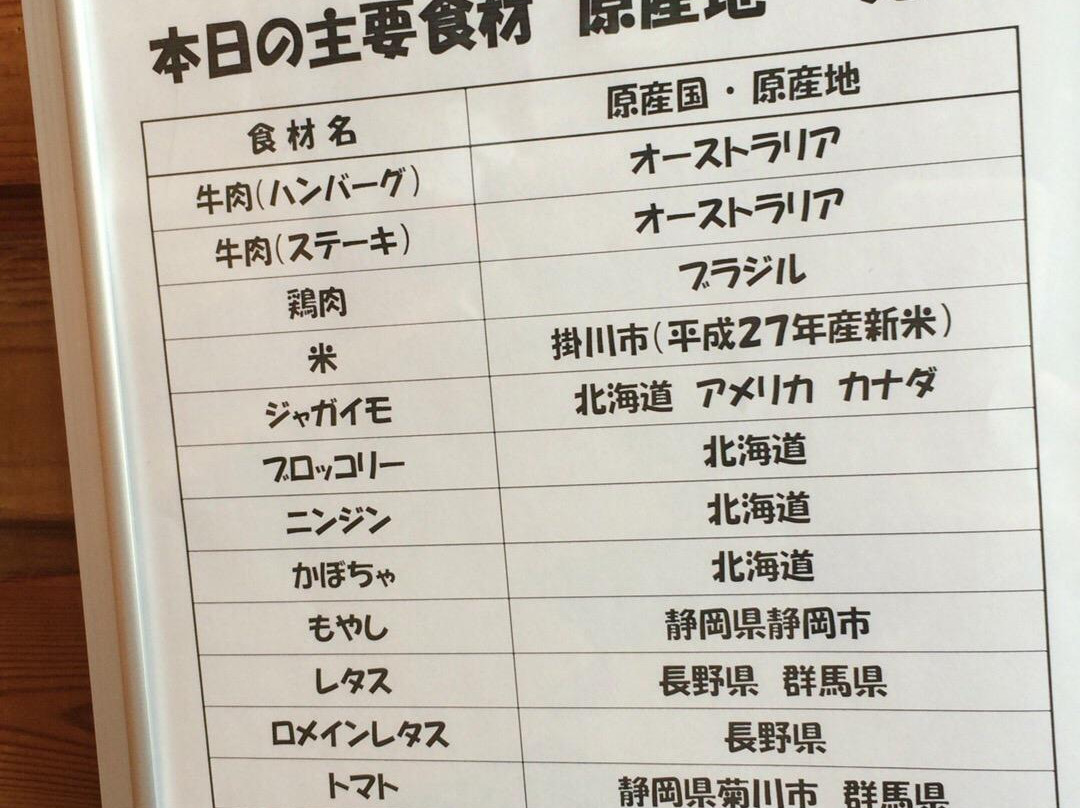 本日の主要食材 原産地
食材名 原産国・原産地
牛肉(ハンバーグ) オーストラリア
牛肉(ステーキ) オーストラリア
鶏肉 ブラジル
米 掛川市(平成27年産新米)
ジャガイモ 北海道 アメリカ カナダ
ブロッコリー 北海道
ニンジン 北海道
かぼちゃ 北海道
もやし 静岡県静岡市
レタス 長野県 群馬県
ロメインレタス 長野県
トマト 静岡県菊川市 群馬県